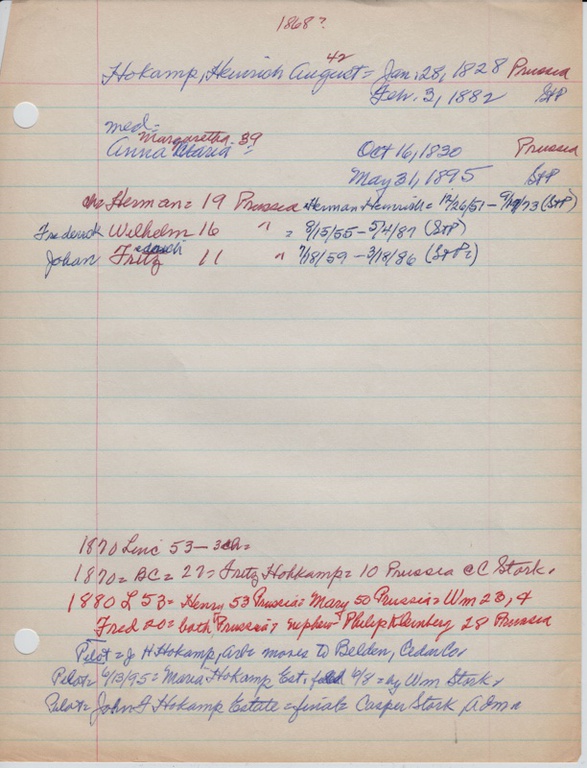 1868?
42
Hokamp, Heinrich August = Jan. 28, 1828 Prussia
Feb. 3, 1882 StP
med=
Margaretha 39
Anna Maria = Oct 16, 1830 Prussia
May 31, 1895 StP
ch= Herman = 19 Prussia Herman Heinrich = 12/26/51 - (StP)
Frederick Wilhelm 16 " = 8/15/55 - 5/4/87 (StP)
Johan Fritz 11 " 7/18/59 - 3/18/86 (StP)
1870 Linc 53 - 3ch=
1870 = BC = 27 = Fritz Hohkamp = 10 Prussia c C Stork.
1880 L 53 = Henry 53 Prussia = Mary 50 Prussia = Wm 23, +
Fred 20 = both Prussia; nephew Philip 28 Prussia
Pilot = J H Hokamp, moves to Belden, Cedar Co.
Pilot = 6/13/95 = Maria Hokamp Est. 6/8 = by Wm Stork.
Pilot = John F Hokamp Estate = final = Casper Stork Adm